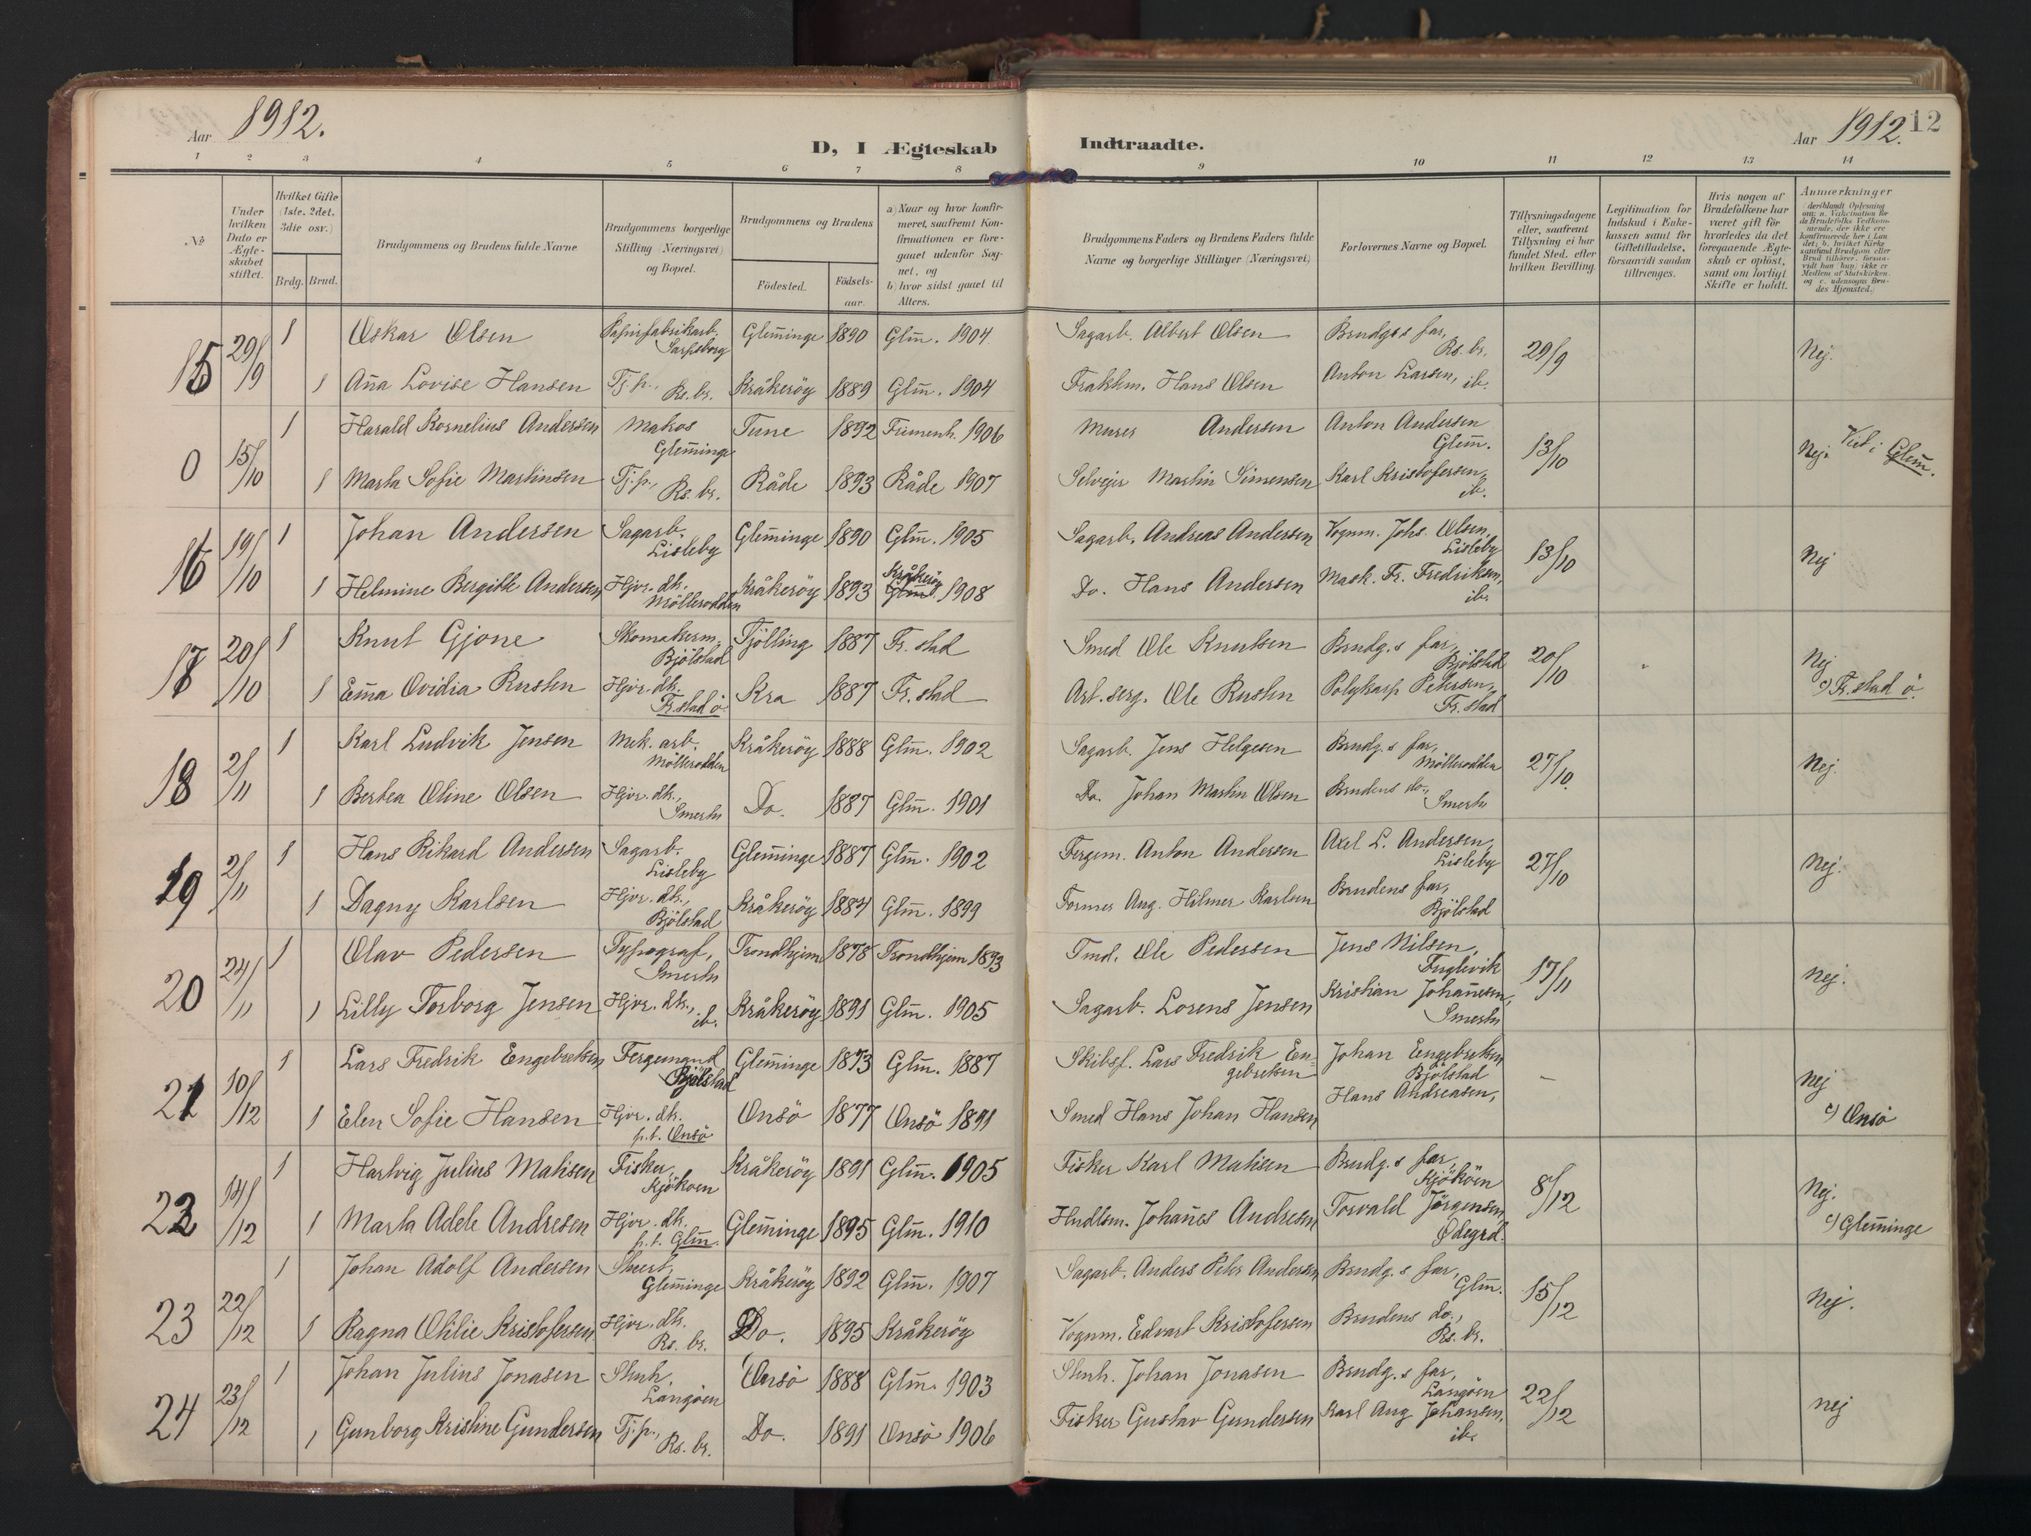 Aar 1912.
D, I Ægteskab
Indtraadte.
Aar 1912. 12
1 2 3 4 5 6 7 8 9 10 11 12 13 14
No
Under hvilken Dato er Ægteskabet stiftet.
Hvilket Gifte (1ste, 2det, 3die osv.)
Brdg. Brud.
Brudgommens og Brudens fulde Navne
Brudgommens borgerlige Stilling (Næringsvei) og Bopæl.
Brudgommens og Brudens
Fødested.
Fødsels-aar.
a) Naar og hvor konfirmeret, saafremt Konfirmationen er foregaaet udenfor Sognet, og
b) hvor sidst gaaet til Alters.
Brudgommens Faders og Brudens Faders fulde Navne og borgerlige Stillinger (Næringsvei).
Forlovernes Navne og Bopæl.
Tillysningsdagene eller, saafremt Tillysning ei har fundet Sted, efter hvilken Bevilling.
Legitimation for Indskud i Enkekassen samt for Giftetilladelse, forsaavidt saadan tiltrænges.
Hvis nogen af Brudefolkene har været gift før hvorledes da det foregaaende Ægteskab er opløst, samt om lovligt Skifte er holdt.
Anmærkninger
15 29/9 1 Oskar Olsen Papirfabrikarb. Sarpsborg Glem̄inge 1890 Glm. 1904 Sagarb. Albert Olsen Brudg.s far, Rs. br. 29/9 Nej.
1 An̄a Lovise Hansen Tj. p., Rs. br. Kråkerøy 1889 Glm̄. 1904 Hans Olsen Anton Larsen, ib.
0 15/10 1 Harald Kornelius Andersen Glem̄inge Tune 1892 1906 Murer Andersen Anton Andersen Glem̄. 13/10 Nej. Viet i Glem̄.
1 Marta Sofie Martinsen Tj. p., Rs. br. Råde 1893 Råde 1907 Selvejer Martin Simensen Karl Kristofersen, ib.
16 19/10 1 Johan Andersen Sagarb. Lisleby Glem̄inge 1890 Glm̄. 1905 Sagarb. Andreas Andersen Vognm. Johs. Olsen, Lisleby 13/10 Nej
1 Helmine Bergitte Andersen Hjvr. dt. Møllerodden Kråkerøy 1893 Kråkerøy 1908 Do. Hans Andersen Mask. Fr. Fredriksen, ib.
17 20/10 1 Knut Gjone Skomakerm. Bjølstad Tjølling 1887 Fr. stad Smed Ole Knutsen Brudg.s far, Bjølstad 20/10 Nej
1 Em̄a Ovidia Rusten Hjvr. dt. Fr. stad ø. Kra 1887 Fr. stad Art. serg. Ole Rusten Polykarp Petersen, Fr. stad c) Fr. stad ø.
18 2/11 1 Karl Ludvik Jensen Mek. arb. Møllerodden Kråkerøy 1888 Glm̄. 1902 Sagarb. Jens Helgesen Brudg.s far, Møllerodden 27/10. Nej.
1 Bertea Oline Olsen Hjvr. dt., Smertu Do. 1887 Glm̄. 1901 Do. Johan Martin Olsen Brudens do., Smertu
19 2/11 1 Hans Rikard Andersen Sagarb. Lisleby Glem̄inge 1887 Glm̄. 1902 Fergem. Anton Andersen Axel L. Andersen, Lisleby 27/10 Nej.
1 Dagny Karlsen Hjvr. dt., Bjølstad Kråkerøy 1884 Glm̄. 1899 Former Aug. Hilmer Karlsen Brudens far, Bjølstad
20 24/11 1 Olav Pedersen Typograf, Smertu Trondhjem 1878 Trondhjem 1893 Tmd. Ole Pedersen Jens Nilsen, Fuglevik 17/11 Nej.
1 Lilly Torborg Jensen Hjvr. dt., ib. Kråkerøy 1891 Glm̄. 1905 Sagarb. Lorens Jensen Kristian Johan̄esen, Smertu
21 10/12 1 Lars Fredrik Engebretsen Fergemand Bjølstad Glem̄inge 1873 Glm̄. 1887 Skibsf. Lars Fredrik Engebretsen Johan Engebretsen Bjølstad - Nej
1 Elen Sofie Hansen Hjvr. dt. p.t. Onsø Onsø 1877 Onsø 1891 Smed Hans Johan Hansen Hans Andreasen, c) Onsø
22 14/12 1 Hartvig Julius Matisen Fisker, Kjøkøen Kråkerøy 1891 Glm̄. 1905 Fisker Karl Matisen Brudg.s far, Kjøkøen 8/12 Nej.
1 Marta Adele Andresen Hjvr. dt. p.t. Glm̄. Glem̄inge 1895 Glm̄. 1910 Hndlsm. Johan̄es Andresen Torvald Jørgensen Ødegrd. c) Glem̄inge
23 22/12 1 Johan Adolf Andersen Glem̄inge Kråkerøy 1892 Glm̄. 1907 Sagarb. Anders Peter Andersen Brudg.s far, Glm̄. 15/12 Nej.
1 Ragna Otilie Kristofersen Hjvr. dt. Rs. br. Do. 1895 Kråkerøy Vognm. Edvart Kristofersen Brudens do., Rs. br.
24 23/12 1 Johan Julius Jonasen Stenh. Langøen Onsø 1888 Glm̄. 1903 Stenh. Johan Jonasen Brudg.s far, Langøen 22/12 nej
1 Gunborg Kristine Gundersen Tj. p., Rs. br. Do. 1891 Onsø 1906 Fisker Gustav Gundersen Karl Aug Johansen, ib.